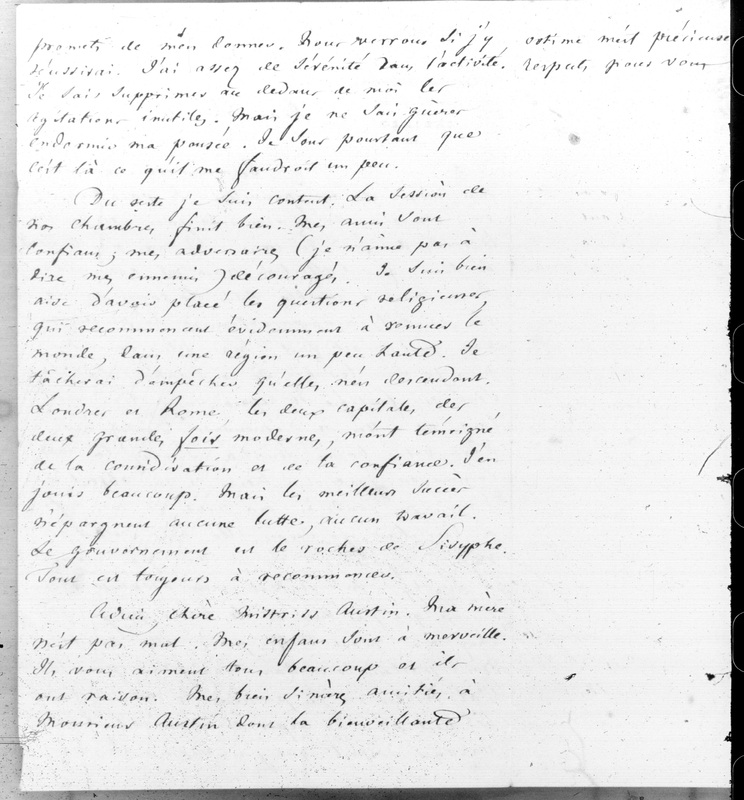 promets de m'en donner. Nous verrons si j'y
réussirai. J'ai assez de sérénité dans l'activité.
Je sais supprimer au dedans de moi les
agitations inutiles. Mais je ne sais guères
endormir ma pensée. Je sens pourtant que
c'est là ce qu'il me faudroit un peu.
Du reste je suis content. La Session de
nos chambres finit bien. Mes amis sont
confians; mes adversaires (je n'aime pas à
dire mes ennemis) découragés. Je suis bien
aise d'avoir placé les questions religieuses,
qui recommencent évidemment à remuer le
monde, dans une région un peu haute. Je
tâcherai d'empêcher qu'elles n'en descendent.
Londres et Rome, les deux capitales des
deux grandes fois modernes, m'ont témoigné
de la considération et de la confiance. J'en
jouis beaucoup. Mais les meilleurs succès
n'épargnent aucune lutte, aucun travail.
Le gouvernement est le rocher de Sisyphe.
Tout est toujours à recommencer.
Adieu, chère Mistriss Austin. Ma mère
n'est pas mal. Mes enfans sont à merveille.
Ils vous aiment tous beaucoup et ils
ont raison. Mes bien sincères amitiés à
Monsieur Austin dont la bienveillante
estime m'est précieuse
respects pour vous